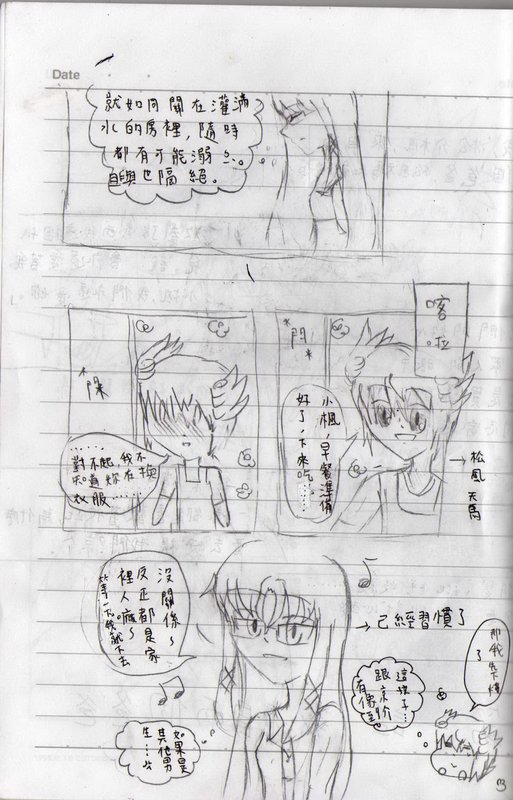 Date
就如同關在灌滿
水的房裡，隨時
都有可能溺亡。
自與世隔絕。
喀
啦。
*門*
小楓，早餐準備
好了，下來吃……
→松風 天馬
*門*
……
對不起，我不
知道妳在換
衣服……
沒關係～
反正都是家
裡人嘛～
等一下我就下去
→已經習慣了
那我先下樓
了
這孩子…
跟京介
有像
如果是
其他男
生…
3